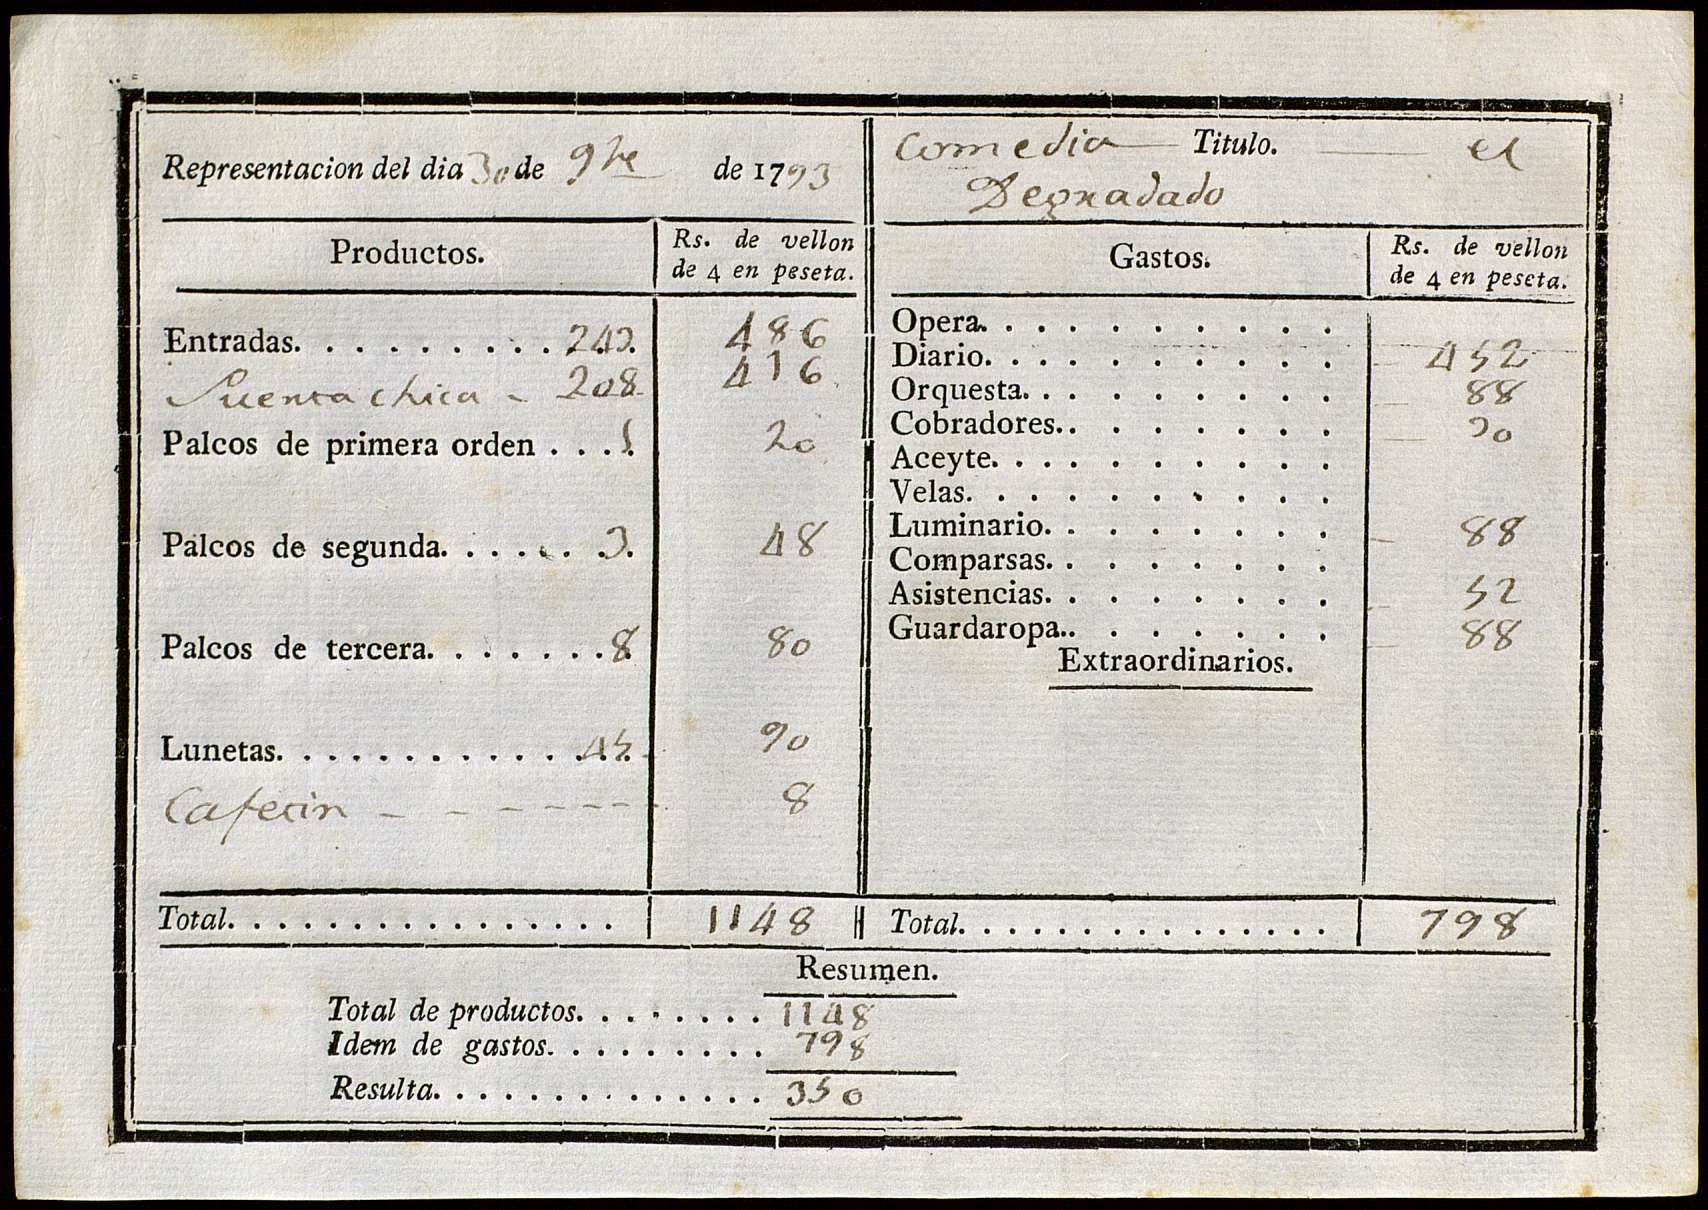 Comedia Titulo. el
Representacion del dia 30 de 9bre de 1793
Degradado
Productos.
Rs. de vellon
de 4 en peseta.
Entradas. . . . . . . . . . 243. 486
Puerta chica - 208 416
Palcos de primera orden . . . 1. 20
Palcos de segunda. . . . . . 3. 48
Palcos de tercera. . . . . . . 8. 80
Lunetas. . . . . . . . . . . . 45. 90
Cafetin - - - - - - - 8
Total. . . . . . . . . . . . . . . . 1148
Gastos.
Rs. de vellon
de 4 en peseta.
Opera. . . . . . . . . . .
Diario. . . . . . . . . . . 452
Orquesta. . . . . . . . . 88
Cobradores. . . . . . . . 30
Aceyte. . . . . . . . . . .
Velas. . . . . . . . . . .
Luminario. . . . . . . . 88
Comparsas. . . . . . . .
Asistencias. . . . . . . . 52
Guardaropa. . . . . . . . 88
Extraordinarios.
Total. . . . . . . . . . . . . . . . 798
Resumen.
Total de productos. . . . . . . . 1148
Idem de gastos. . . . . . . . . 798
Resulta. . . . . . . . . . . . . . 350